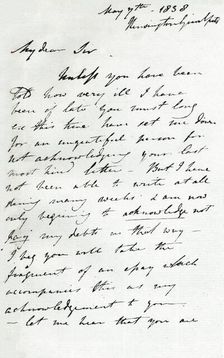 May 7th. 1838
Kensington
My dear Sir
Unless you have been
told how very ill I have
been of late you must long
ere this time have set me down
for an ungrateful person for
not acknowledging your last
most kind letter – But I have
not been able to write at all
during many weeks: & am now
only beginning to acknowledge not
pay my debts in that way –
I beg you will take the
fragment of an essay which
accompanies this as my
acknowledgement to you
– let me hear that you are